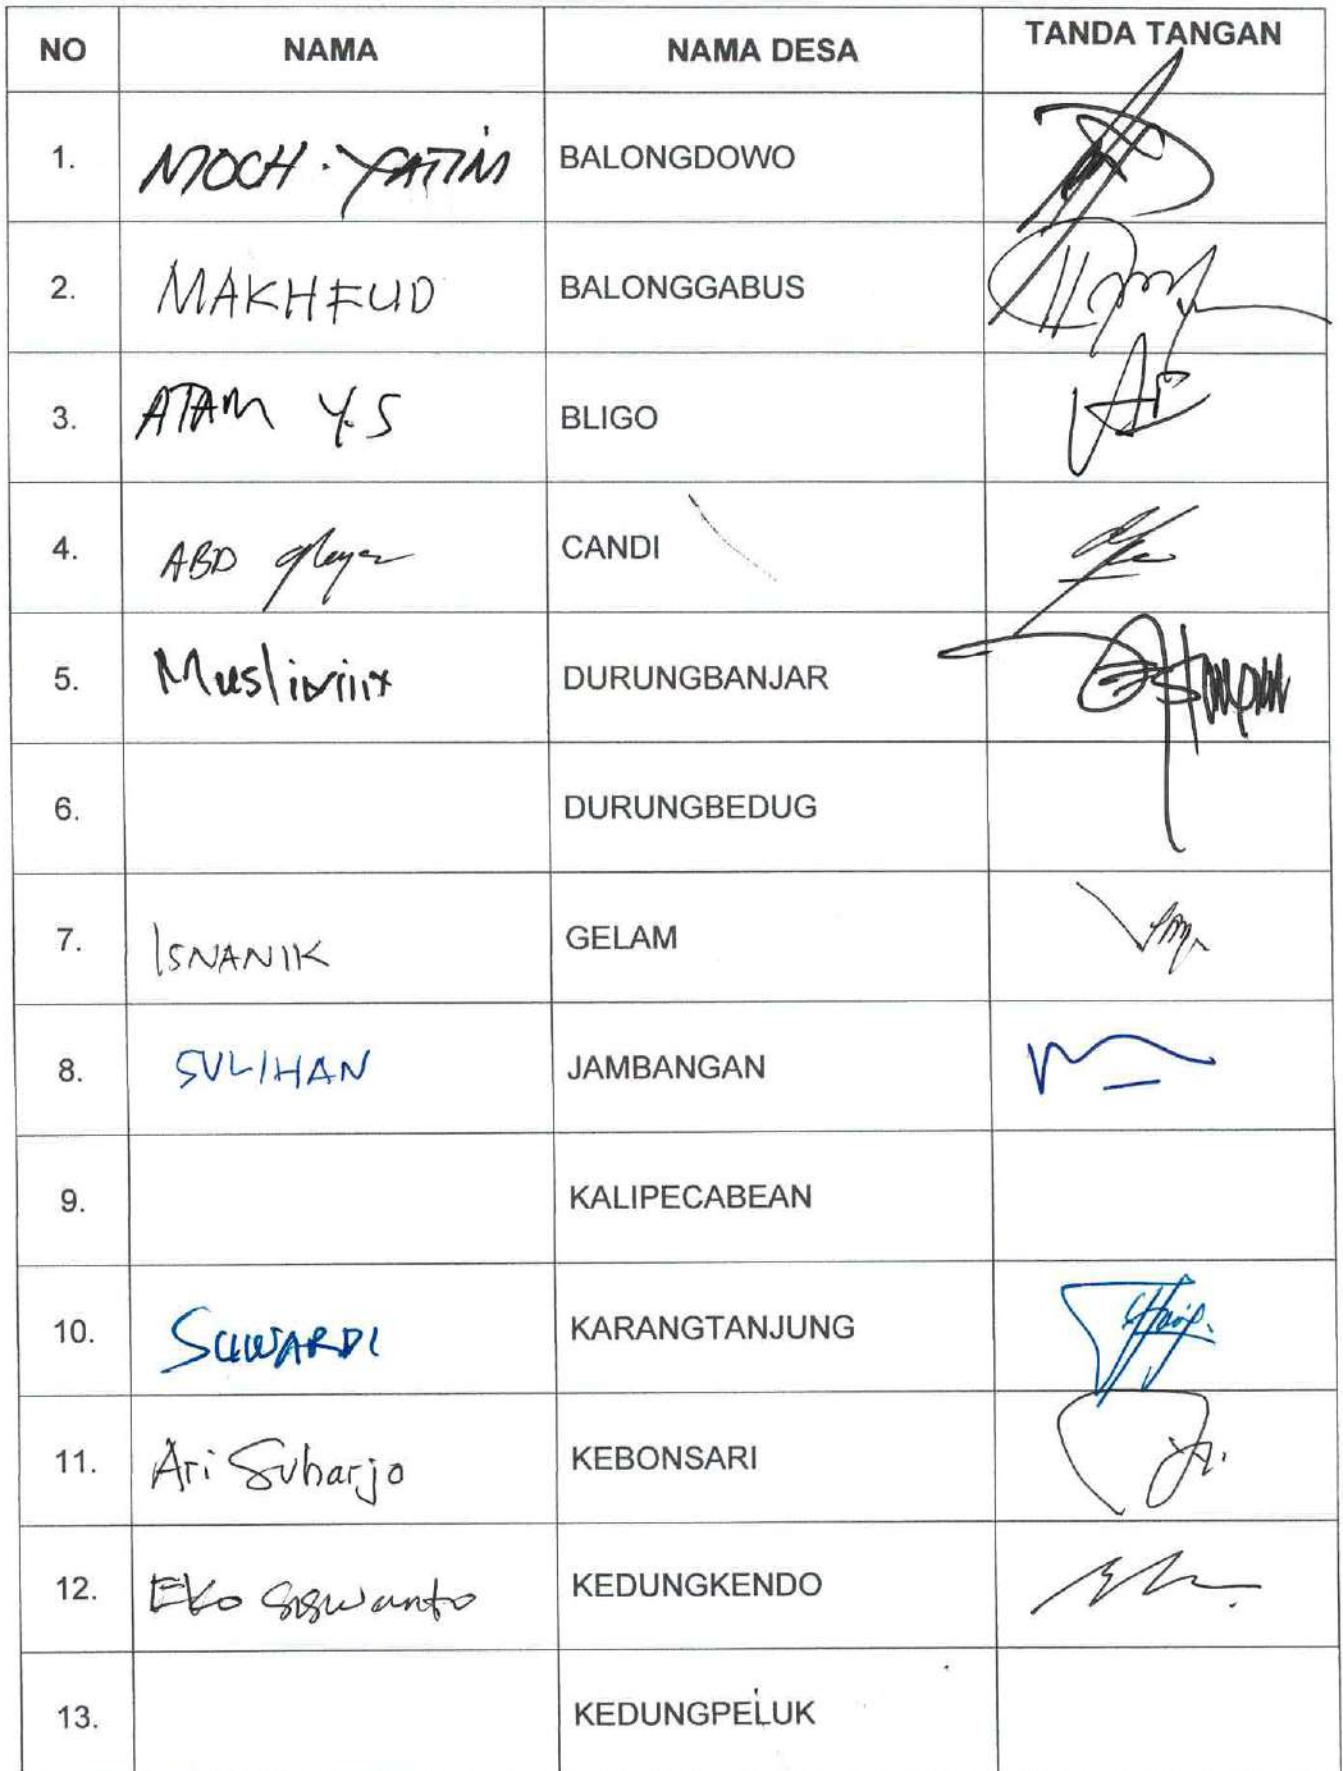 NO NAMA NAMA DESA TANDA TANGAN
1. MOCH. YATIM BALONGDOWO
2. MAKHFUD BALONGGABUS
3. ATAM Y.S BLIGO
4. ABD CANDI
5. DURUNGBANJAR
6. DURUNGBEDUG
7. ISNANIK GELAM
8. SULIHAN JAMBANGAN
9. KALIPECABEAN
10. SUWARDI KARANGTANJUNG
11. Ari Suharjo KEBONSARI
12. Eko Siswanto KEDUNGKENDO
13. KEDUNGPELUK